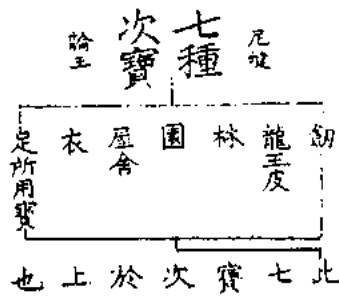 尼揵
七種
次寶
輪王
劒
龍王皮
林
園
屋舍
衣
足所用寶
此七寶次於上也